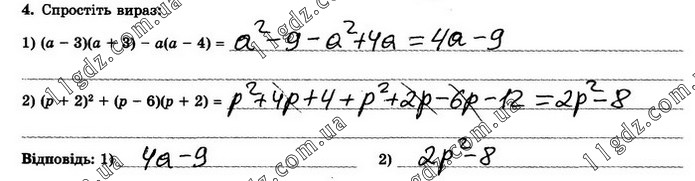 4. Спростіть вираз:
1) (a – 3)(a + 3) – a(a – 4) = a² – 9 – a² + 4a = 4a – 9
2) (p + 2)² + (p – 6)(p + 2) = p² + 4p + 4 + p² + 2p – 6p – 12 = 2p² – 8
Відповідь: 1) 4a – 9 2) 2p² – 8
11gdz.com.ua